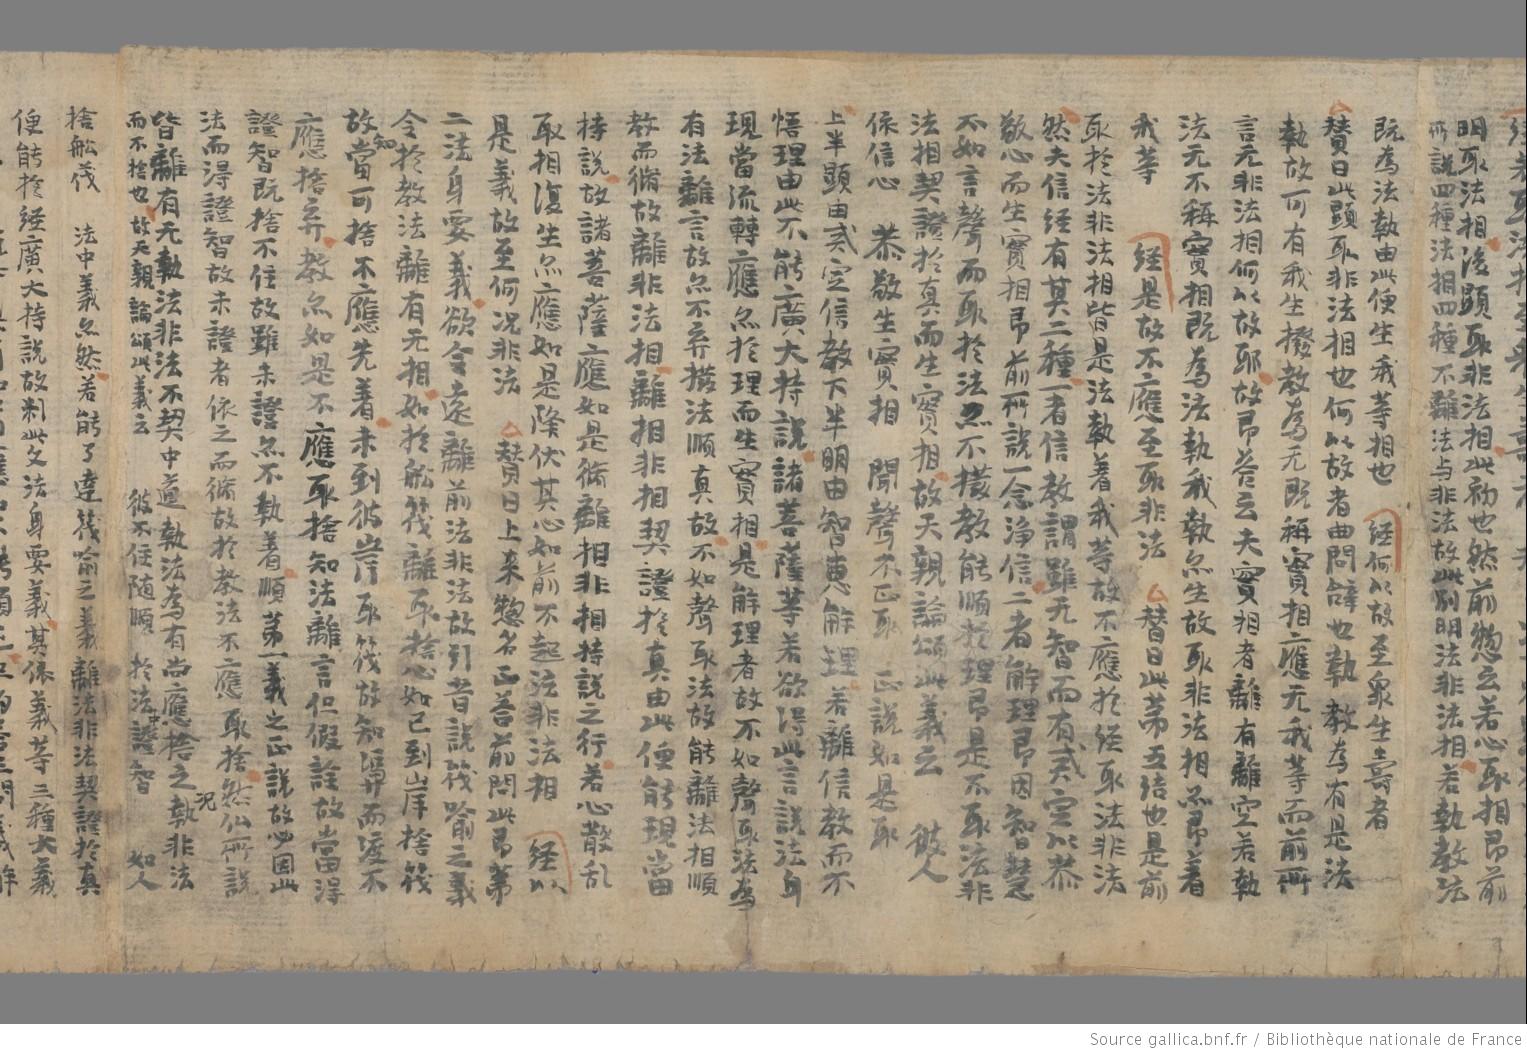 明取法相後顯取非法相此初也然前惣云若心取相即前
所說四種法相四種不離法与非法故此別明法非法相若執教法
既為法執由此便生我等相也 経何以故至衆生壽者
賛曰此顯取非法相也何以故者曲問辝也執教為有是法
執故可有我生撥教為无既稱實相應无我等而前所
言元非法相何以故耶故即荅云夫實相者離有離空若執
法元不稱實相既為法執我執亦生故取非法相亦即著
我等 経是故不應至取非法 賛曰此第五結也是前
取於法非法相皆是法執著我等故不應於経取法非法
然夫信経有其二種一者信教謂雖无智而有弍定以恭
敬心而生實相即前所說一念淨信二者解理即因智慧
不如言聲而取於法亦不撥教能順於理即是不取法非
法相契證於真而生實相故天親論頌此義云 彼人
依信心 恭敬生實相 聞聲不正取 正說如是取
上半顯由弍定信教下半明由智恵解理若離信教而不
悟理由此不能廣大持說諸菩薩等若欲得此言說法身
現當流轉應亦於理而生實相是解理者故不如聲取法為
有法離言故亦不弃撥法順真故不如聲取法故能離法相順
教而脩故離非法相離相非相契證於真由此便能現當
持說故諸菩薩應如是脩離相非相持說之行若心散乱
取相復生亦應如是降伏其心如前不起法非法相 経以
是義故至何况非法 賛曰上来惣名正荅前問此即第
二法身要義欲令遠離前法非法故引昔說筏喻之義
令於教法離有无相如於舩筏離取捨心如已到岸捨筏
故當知可捨不應先著未到彼岸取筏故知爲而渡不
應捨弃教亦如是不應取捨知法離言但假詮故當得
證智既捨不住故雖未證亦不執著順第一義之正說故必因此
法而得證智故未證者依之而脩故於教法不應取捨然仏所說
皆離有无執法非法不契中道執法為有尚應捨之况執非法
而不捨也故天親論頌此義云 彼不住随順 於法中證智 如人
捨舩筏 法中義亦然若能了達筏喻之義離法非法契證於真
便能於経廣大持說故判此文法身要義其依義等三種大義